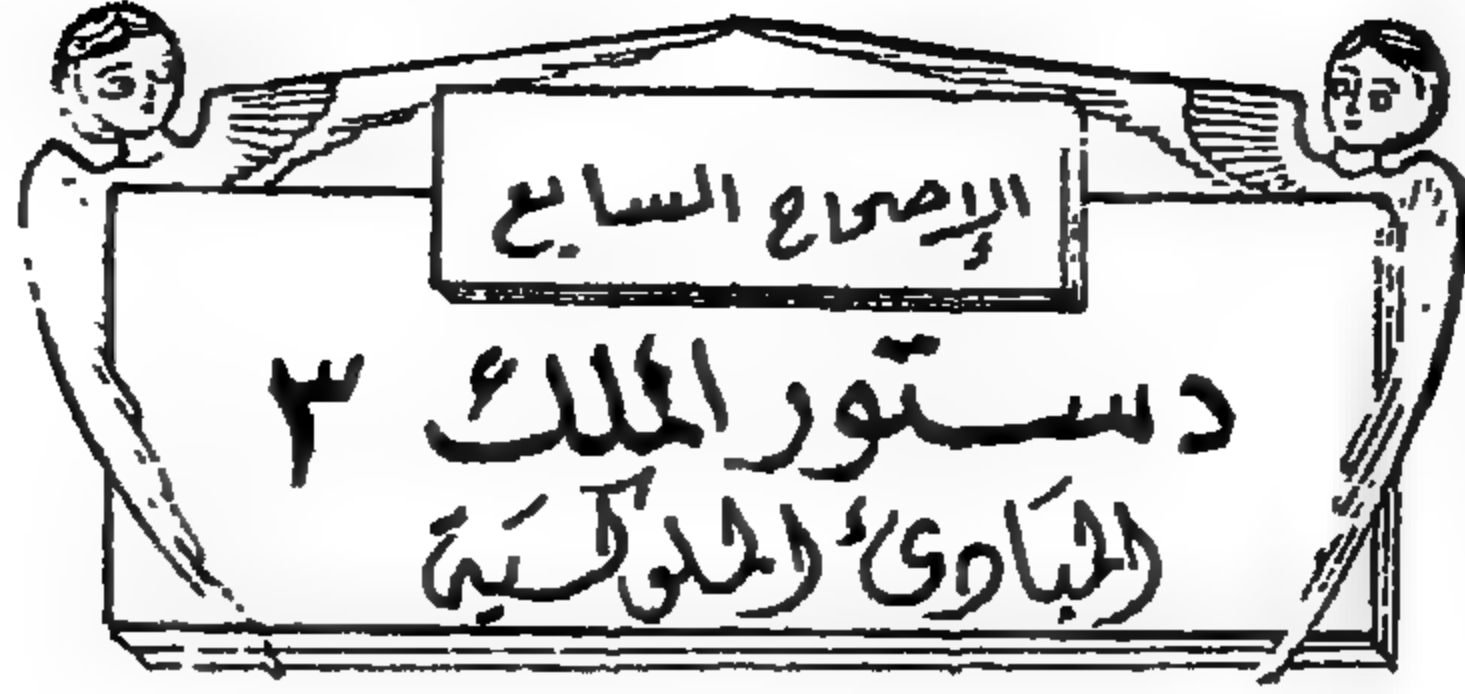 الإصحاح السابع
دستور الملك ٣
المبادئ الملوكية